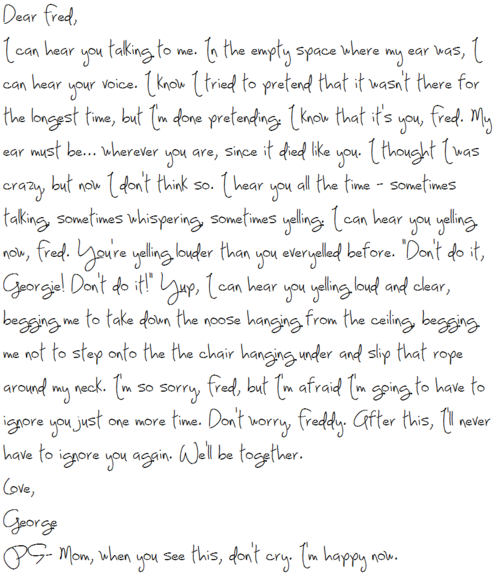 Dear Fred,
I can hear you talking to me. In the empty space where my ear was, I
can hear your voice. I know I tried to pretend that it wasn't there for
the longest time, but I'm done pretending. I know that it's you, Fred. My
ear must be... wherever you are, since it died like you. I thought I was
crazy, but now I don't think so. I hear you all the time - sometimes
talking, sometimes whispering, sometimes yelling. I can hear you yelling
now, Fred. You're yelling louder than you everyelled before. "Don't do it,
Georgie! Don't do it!" Yup, I can hear you yelling loud and clear,
begging me to take down the noose hanging from the ceiling, begging
me not to step onto the the chair hanging under and slip that rope
around my neck. I'm so sorry, Fred, but I'm afraid I'm going to have to
ignore you just one more time. Don't worry, Freddy. After this, I'll never
have to ignore you again. We'll be together.
Love,
George
PS- Mom, when you see this, don't cry. I'm happy now.